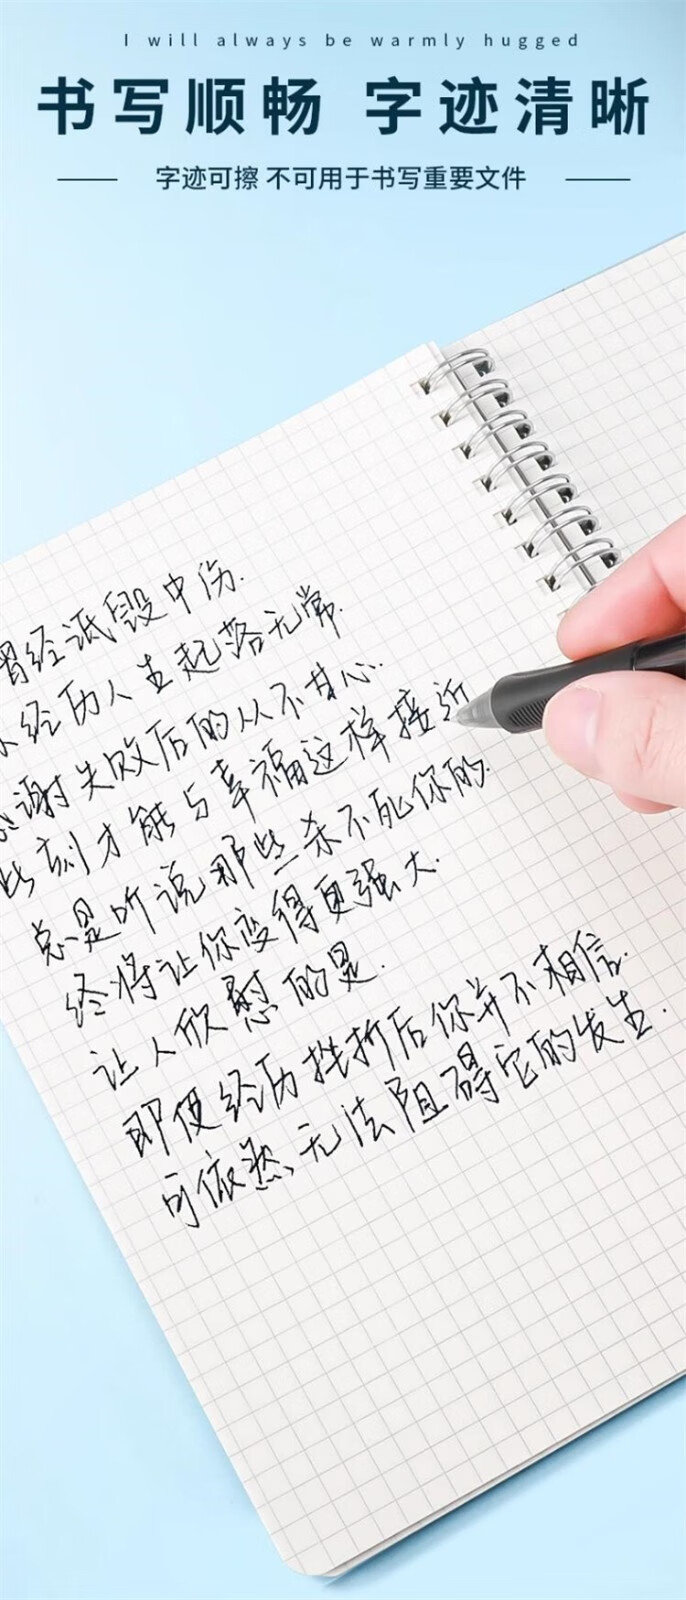 I will always be warmly hugged
书写顺畅 字迹清晰
字迹可擦 不可用于书写重要文件
曾经诋毁中伤.
经历人生起落无常.
谢失败后的从不甘心.
此刻才能与幸福这样接近
总是听说那些杀不死你的.
终将让你变得更强大.
让人欣慰的是.
即便经历挫折后你并不相信.
可依然无法阻碍它的发生.